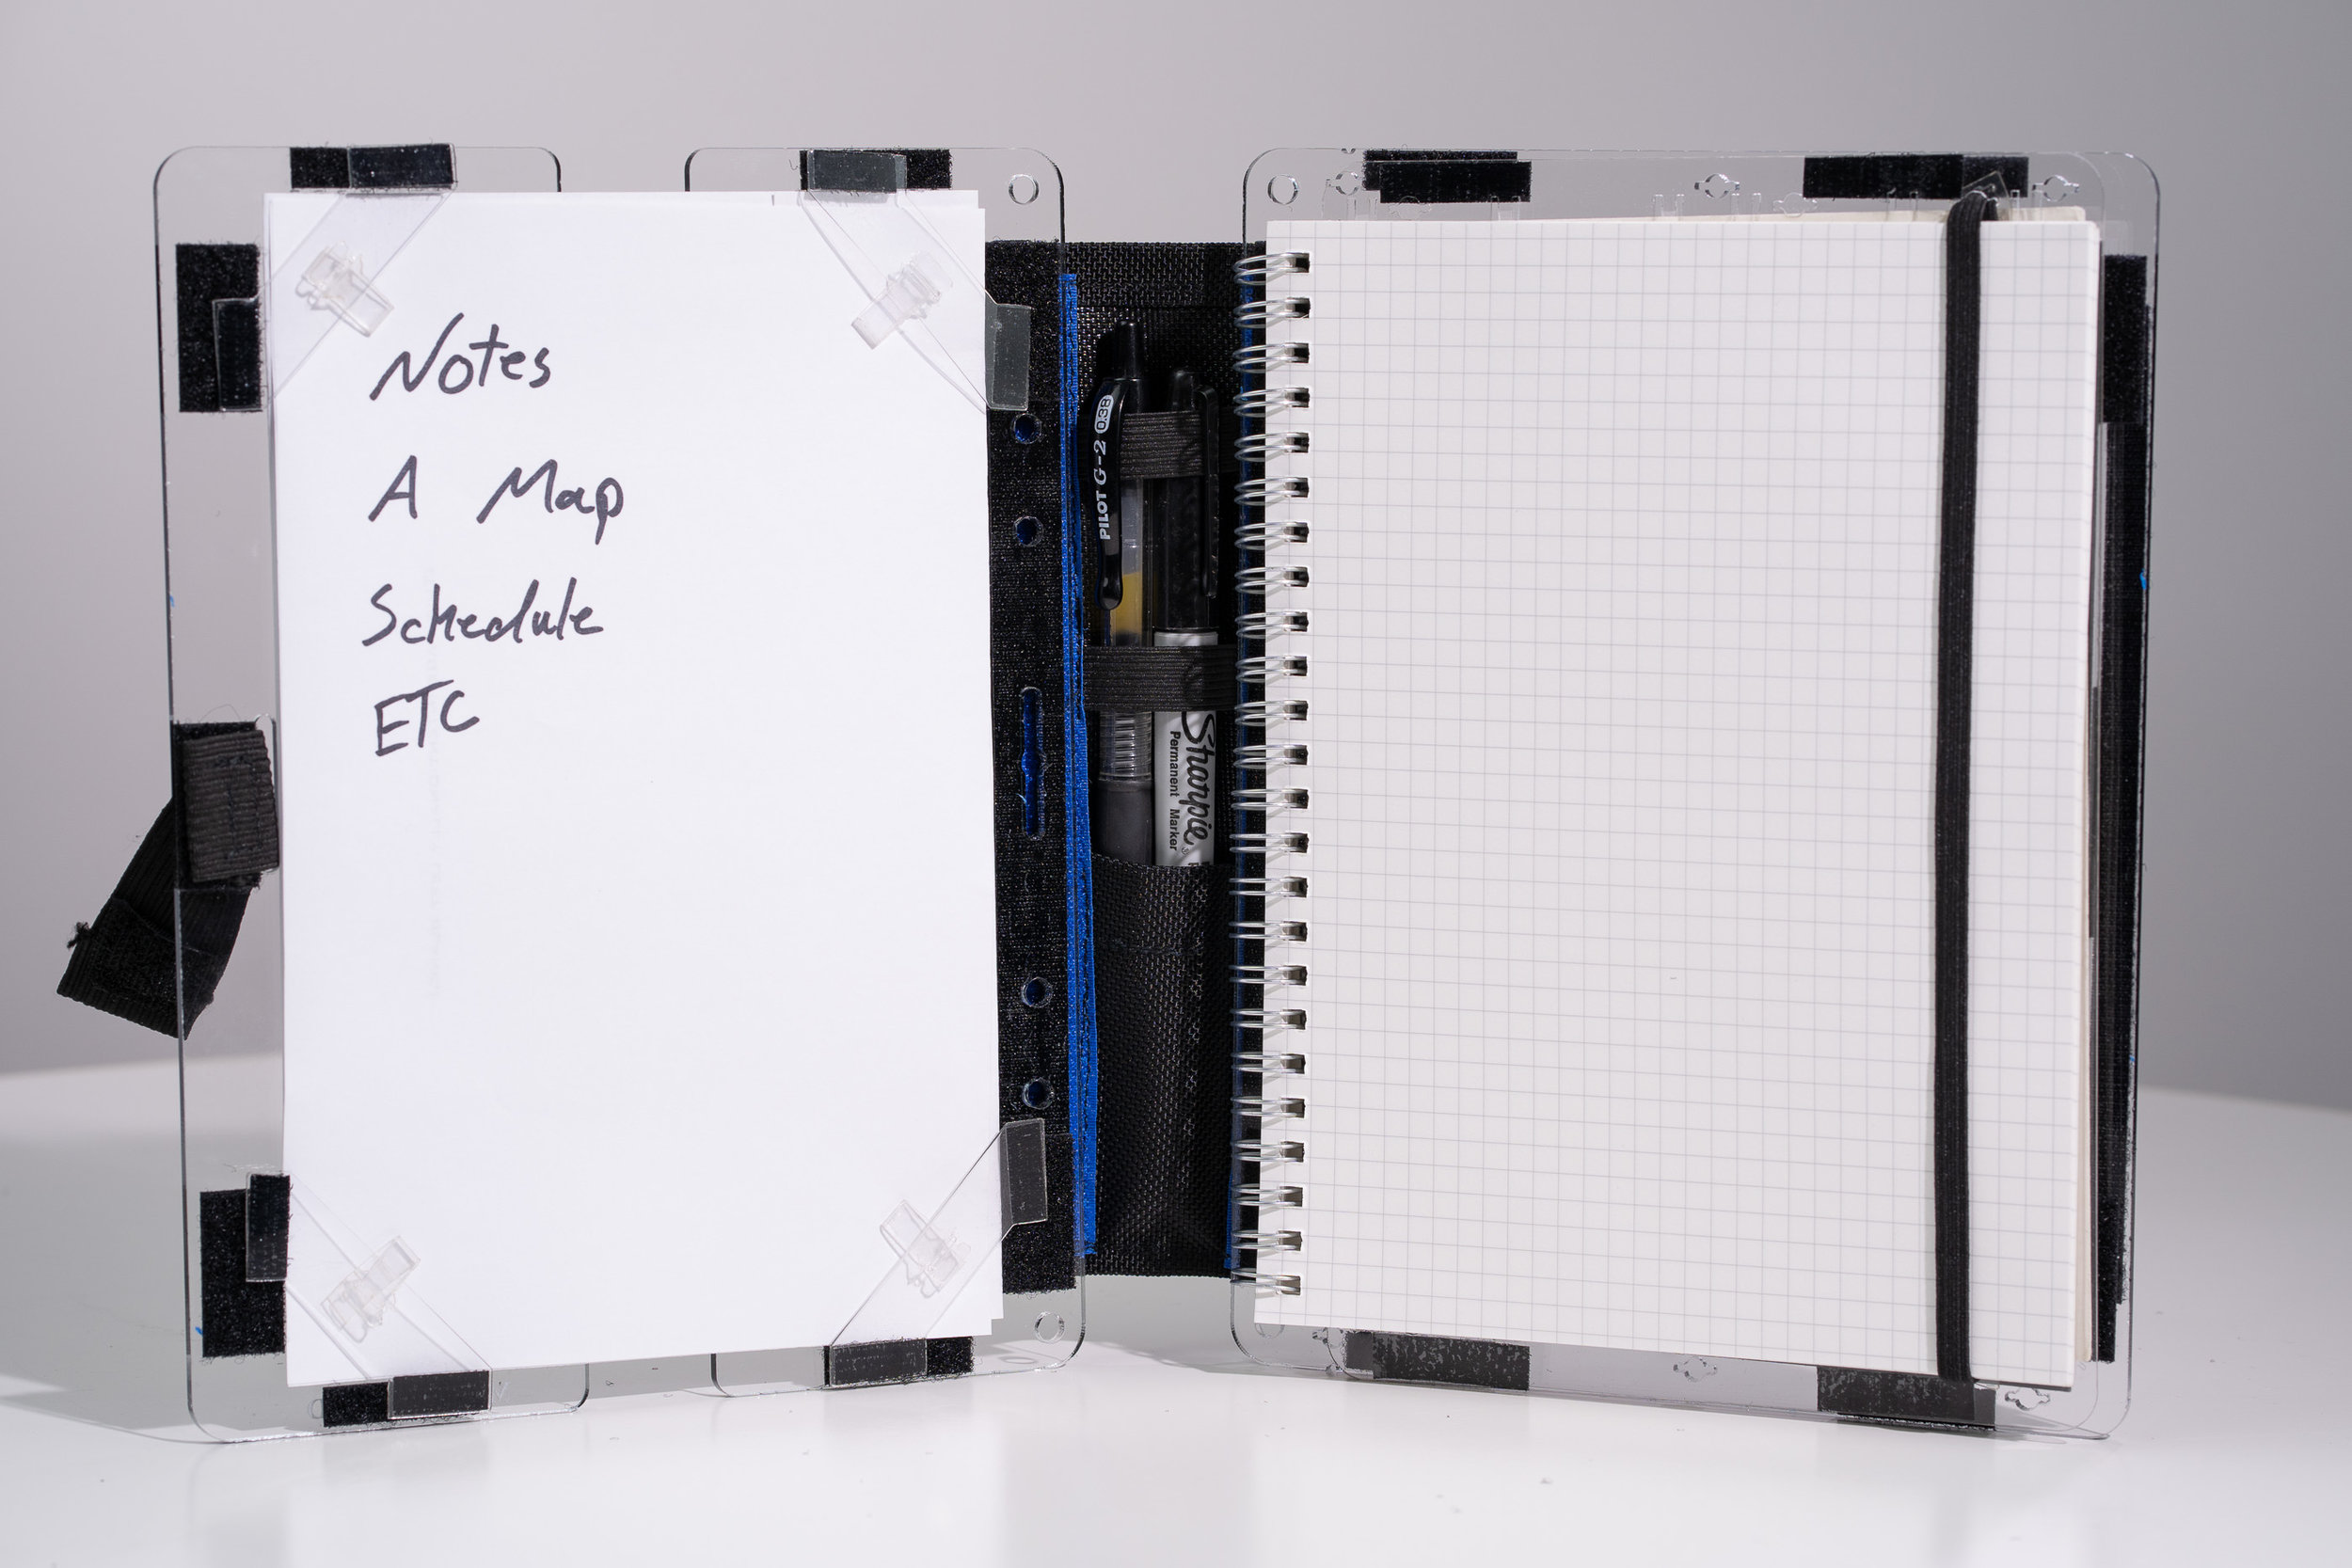 Notes
A Map
Schedule
ETC
PILOT G-2 0.38
Sharpie
Permanent Marker